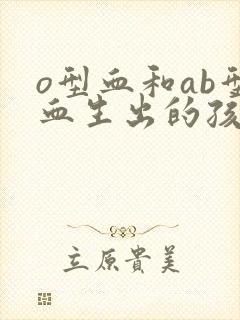 o型血和ab型
血生出的孩
立原貴美